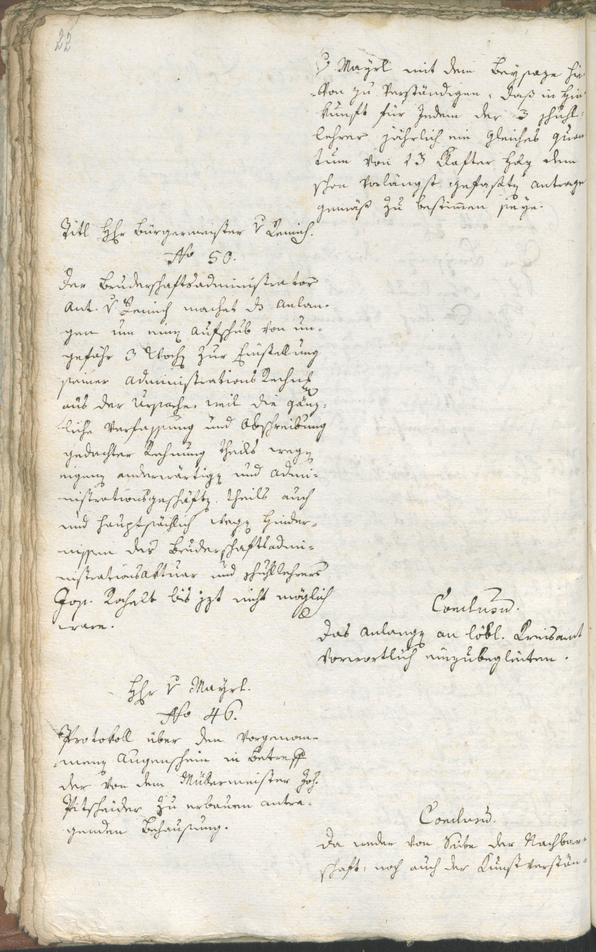 22
v Mayrl mit dem Beysaze hie
von zu verständigen, daß in Hin
kunft für Jedem der 3 Schul-
lehrer jährlich ein gleiches Quan
tum von 13 Klafter Holz dem
schon vorlängst gefaßten Antrage
gemäß zu bestimmen seye.
Titl Hhr Bürgermeister v
No 50.
Der Bruderschaftsadministrator
Ant. v machet das Anlan-
gen um einen Aufschub von un-
gefähr 3 Wochen zur Einstellung
seiner Administrations Rechnung
aus der Ursache, weil die gänz-
liche Verfassung und Abschreibung
gedachter Rechnung theils wegen
eigenen anderwärtigen und Admi-
nistrationsgeschäften, theils auch
und hauptsächlich wegen Hinder-
nissen des Bruderschaftsadmi-
nistrationsaktuar und Schullehrers
Jos. bis jezt nicht möglich
ware.
Conclusum.
Das Anlangen an löbl. Kreisamt
vorwortlich einzubegleiten.
Hhr v Mayrl.
No 46.
Protokoll über den vorgenom-
menen Augenschein in Betreff
der von dem Joh.
Pitscheider zu erbauen antra-
genden Behausung.
Conclusum.
Da weder von Seite der Nachbar-
schaft, noch auch der Kunstverstän-